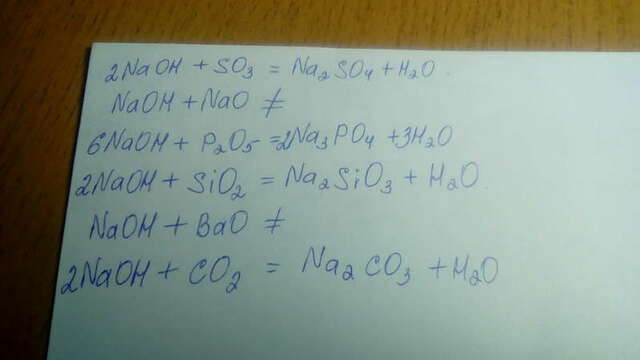 2NaOH + SO₃ = Na₂SO₄ + H₂O.
NaOH + NaO ≠
6NaOH + P₂O₅ = 2Na₃PO₄ + 3H₂O
2NaOH + SiO₂ = Na₂SiO₃ + H₂O.
NaOH + BaO ≠
2NaOH + CO₂ = Na₂CO₃ + H₂O